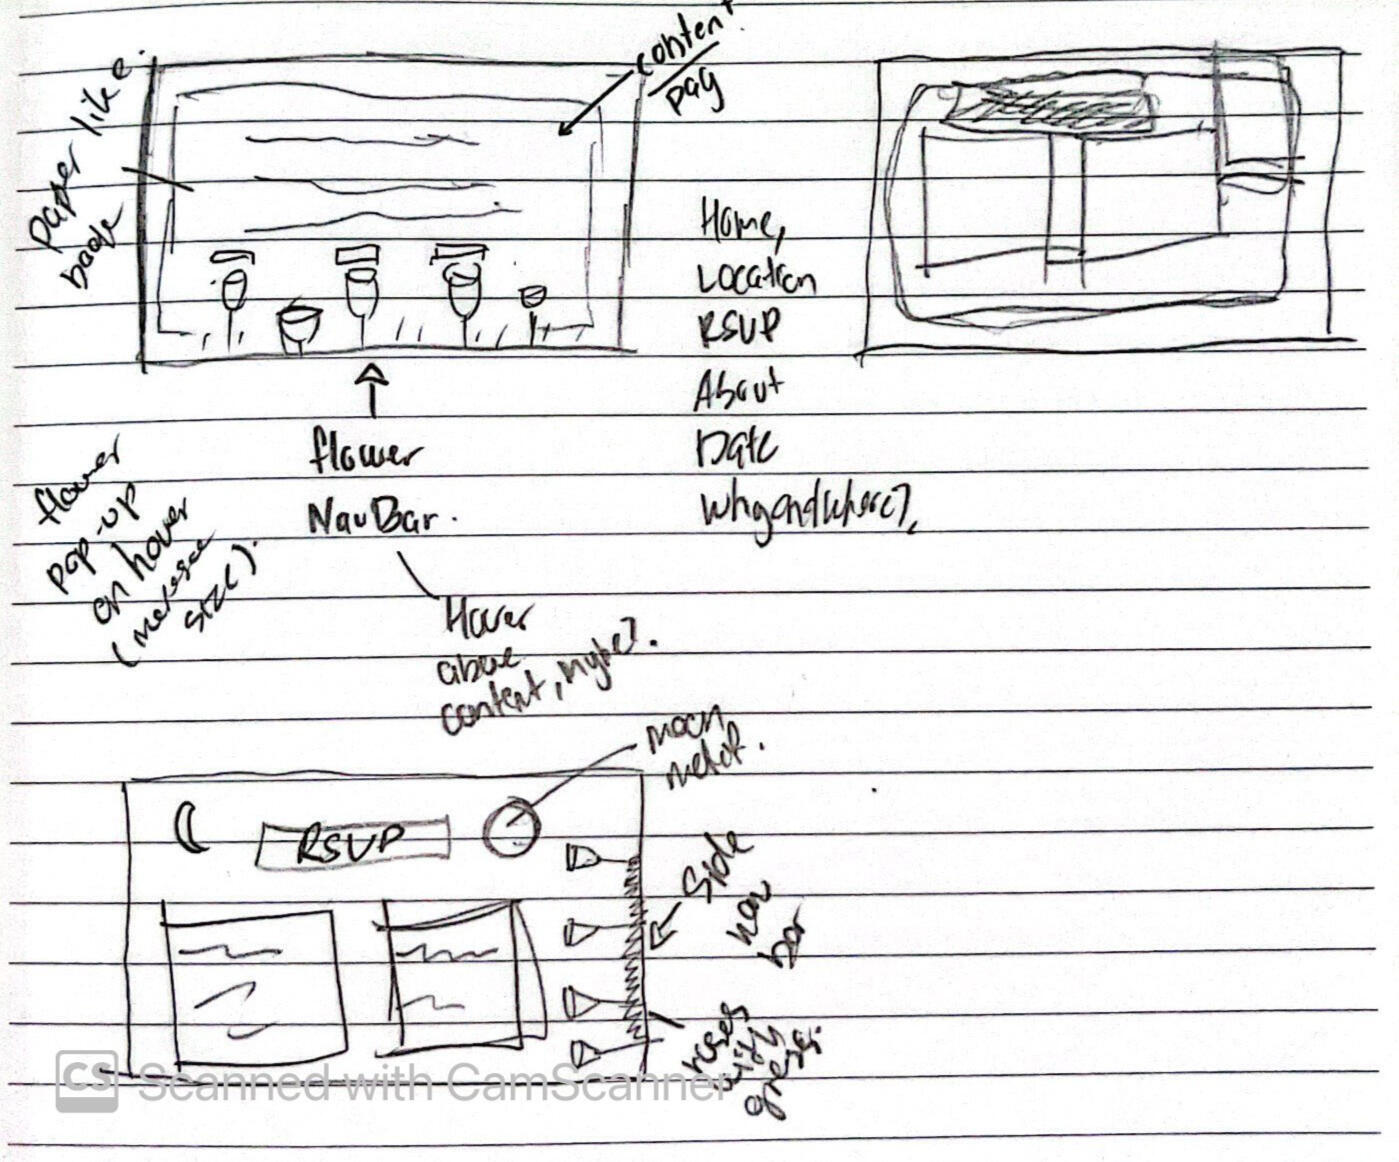 content
pag
paper like
Home,
Location
RSVP
About
Date
flower
NavBar.
flower
pop-up
on hover
size).
Hover
above
content, mybe?.
moon
RSVP
Side
nav
bar
roses
with
CS Scanned with CamScanner